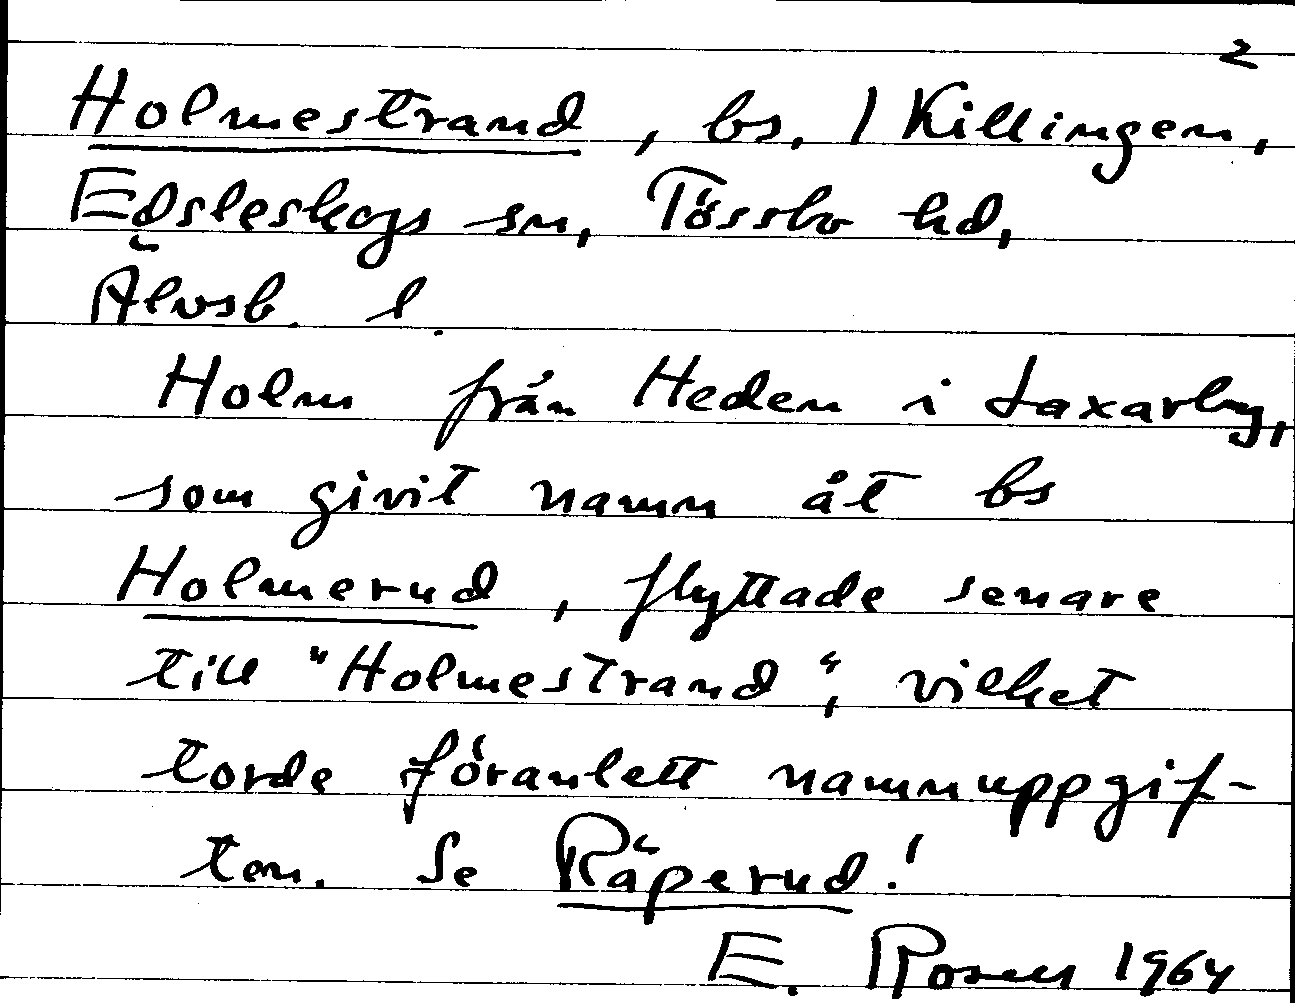 2
Holmestrand, bs. / Killingen,
Edsleskogs sn, Tössbo hd,
Älvsb. l.
Holm från Heden i Laxarby,
som givit namn åt bs
Holmerud, flyttade senare
till "Holmestrand", vilket
torde föranlett namnuppgif-
ten. Se Räperud!
E. Rosen 1964